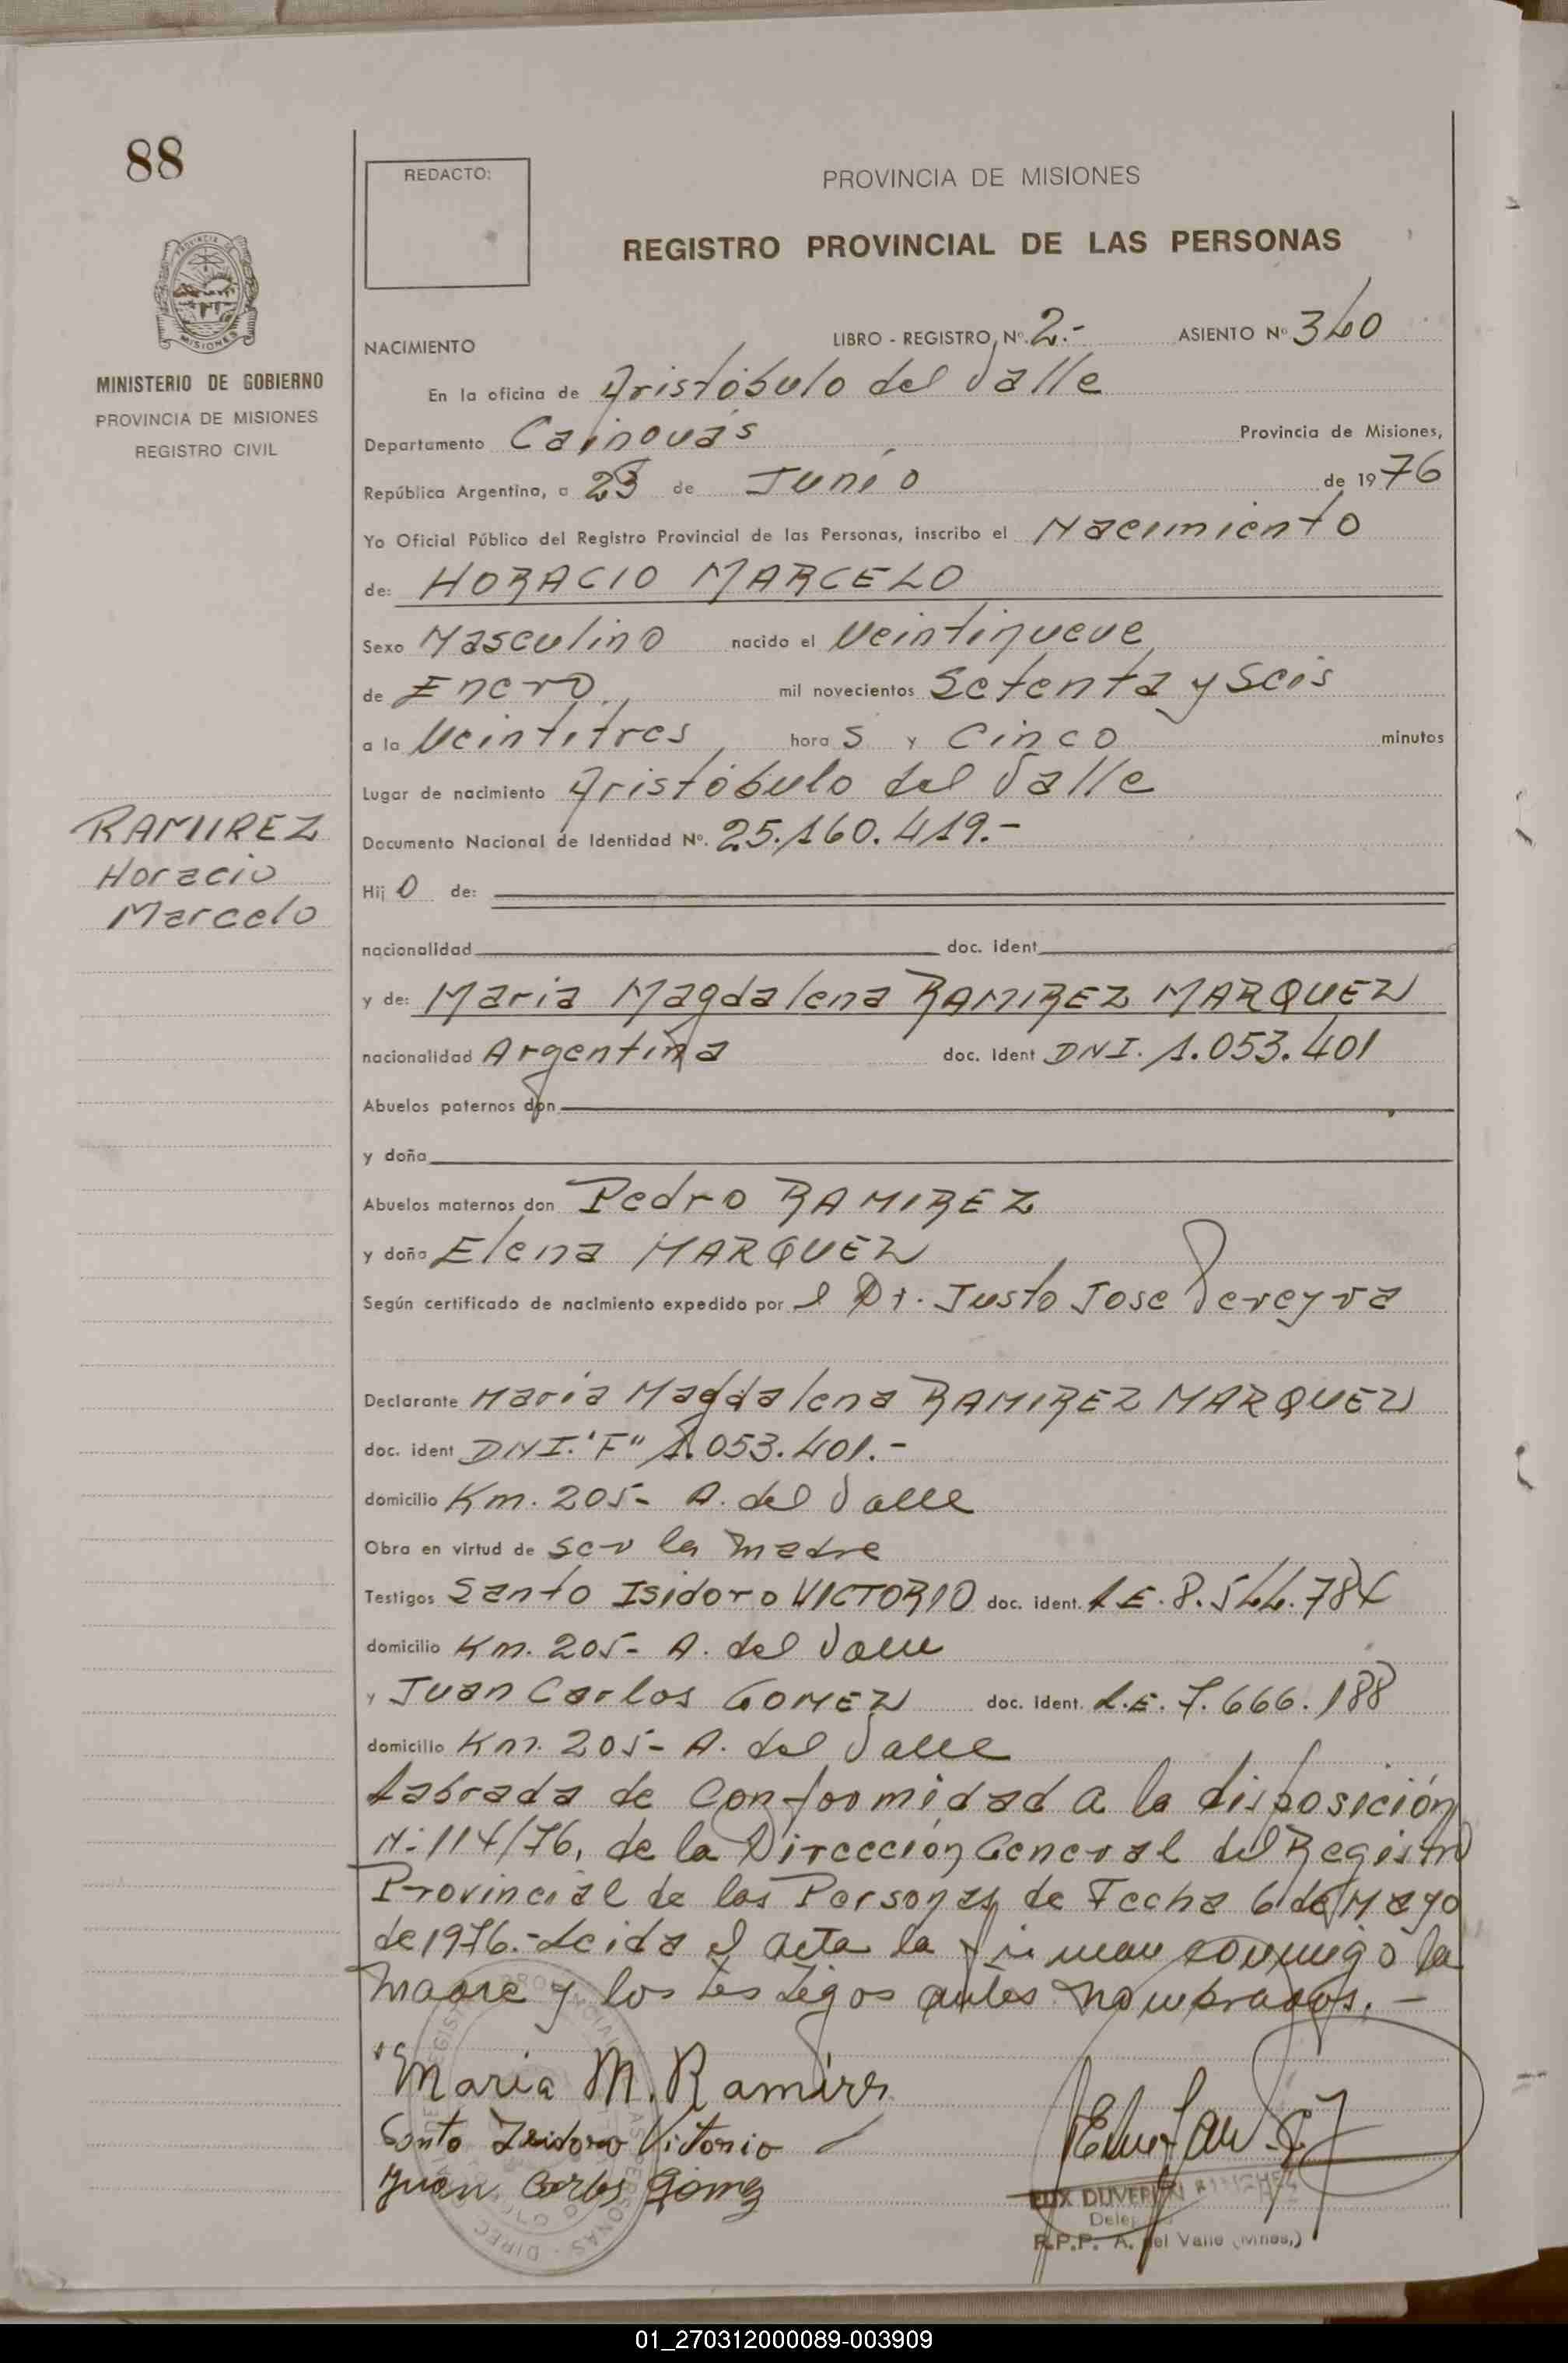 88
REDACTO:
PROVINCIA DE MISIONES
REGISTRO PROVINCIAL DE LAS PERSONAS
MISIONES
MINISTERIO DE GOBIERNO
PROVINCIA DE MISIONES
REGISTRO CIVIL
NACIMIENTO LIBRO - REGISTRO, Nº. 2.- ASIENTO Nº 360
En la oficina de Aristóbulo del Valle
Departamento Cainguás Provincia de Misiones,
República Argentina, a 23 de Junio de 1976
Yo Oficial Público del Registro Provincial de las Personas, inscribo el Nacimiento
de: HORACIO MARCELO
Sexo Masculino nacido el Veintinueve
de Enero mil novecientos Setenta y Seis
a la Veintitres hora s y Cinco minutos
Lugar de nacimiento Aristóbulo del Valle
RAMIREZ
Horacio
Marcelo
Documento Nacional de Identidad Nº. 25.160.419.-
Hij o de:
nacionalidad doc. ident
y de: Maria Magdalena RAMIREZ MARQUEZ
nacionalidad Argentina doc. Ident DNI. 1.053.401
Abuelos paternos don
y doña
Abuelos maternos don Pedro RAMIREZ
y doña Elena MARQUEZ
Según certificado de nacimiento expedido por el Dr. Justo Jose Pereyra
Declarante Maria Magdalena RAMIREZ MARQUEZ
doc. ident DNI. "F" 1.053.401.-
domicilio Km. 205- A. del Valle
Obra en virtud de ser la madre
Testigos Santo Isidoro VICTORIO doc. ident. L.E. 8.544.784
domicilio Km. 205- A. del Valle
y Juan Carlos GOMEZ doc. Ident. L.E. 7.666.188
domicilio Km. 205- A. del Valle
Labrada de Conformidad a la disposición
N: 114/76, de la Dirección General del Registro
Provincial de las Personas de Fecha 6 de Mayo
de 1976.- Leida el acta la firman conmigo la
madre y los testigos antes nombrados. -
Maria M. Ramirez
Santo Isidoro Victorio
Juan Carlos Gómez
DUVERNE
Dele
R.P.P. A. del Valle (Mnes.)
01_270312000089-003909